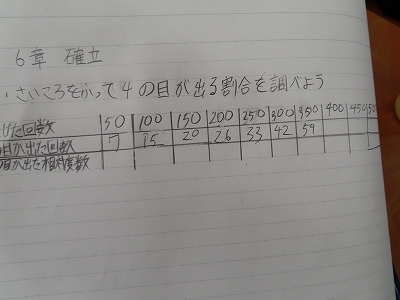 6章 確立
・さいころをふって4の目が出る割合を調べよう
げた回数 50 100 150 200 250 300 350 400 450
目が出た回数 7 15 20 26 33 42 59
目が出た相対度数